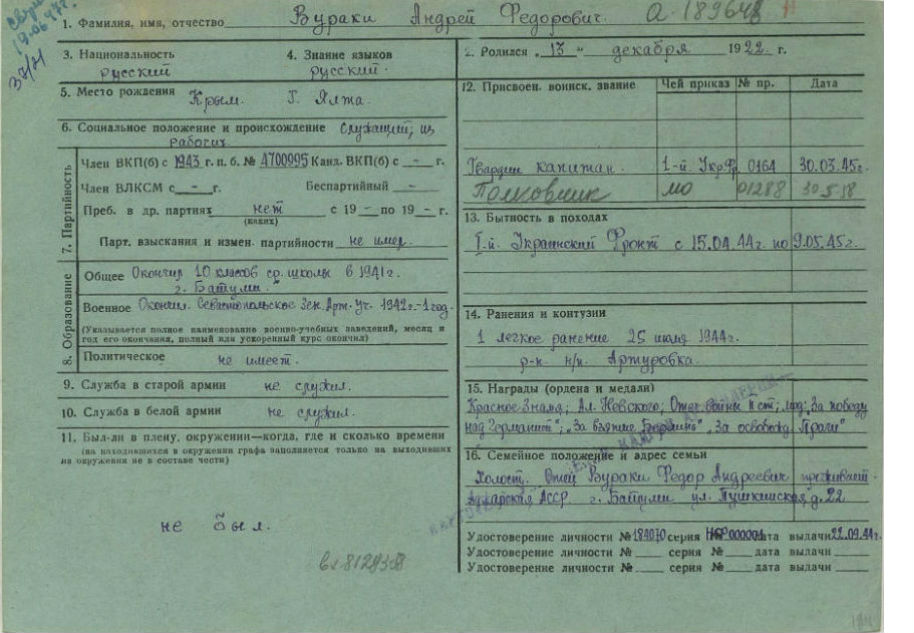 19.06.47г.
37/21
1. Фамилия, имя, отчество Вураки Андрей Федорович. А-189648
3. Национальность 4. Знание языков
русский русский.
2. Родился „13" декабря 1922 г.
5. Место рождения Крым. Г. Ялта.
6. Социальное положение и происхождение служащий, из
рабочих
7. Партийность
Член ВКП(б) с 1943 г. п. б. № 4700995 Канд. ВКП(б) с – г.
Член ВЛКСМ с – г. Беспартийный –
Преб. в др. партиях нет с 19 – по 19 – г.
(каких)
Парт. взыскания и измен. партийности не имел.
8. Образование
Общее Окончил 10 классов ср. школы в 1941г.
г. Батуми.
Военное Окончил. Севастопольское Зен. Арт. Уч. 1942г.-1 год.
(Указывается полное наименование военно-учебных заведений, месяц и
год его окончания, полный или ускоренный курс окончил)
Политическое
не имеет.
9. Служба в старой армии не служил.
10. Служба в белой армии не служил.
11. Был-ли в плену, окружении—когда, где и сколько времени
(на находившихся в окружении графа заполняется только на выходивших
из окружения не в составе части)
не был.
12. Присвоен. воинск. звание Чей приказ № пр. Дата
Гвардии капитан. 1-й Укр.Ф. 0164 30.03.45г.
Полковник МО 01288
13. Бытность в походах
I-й. Украинский Фронт с 15.04.44г. по 9.05.45г.
14. Ранения и контузии
1 легкое ранение 25 июля 1944г.
р-н н/п. Артуровка.
15. Награды (ордена и медали)
Красное Знамя; Ал. Невского, Отеч. войны II ст; мед: „За победу
над Германией"; „За взятие Берлина" „За освобожд. Праги"
16. Семейное положение и адрес семьи
Холост. Отец Вураки Федор Андреевич проживает
Аджарская АССР г. Батуми ул. Пушкинская, д. 22
Удостоверение личности № 189070 серия дата выдачи 22.09.44г.
Удостоверение личности № серия № дата выдачи
Удостоверение личности № серия № дата выдачи